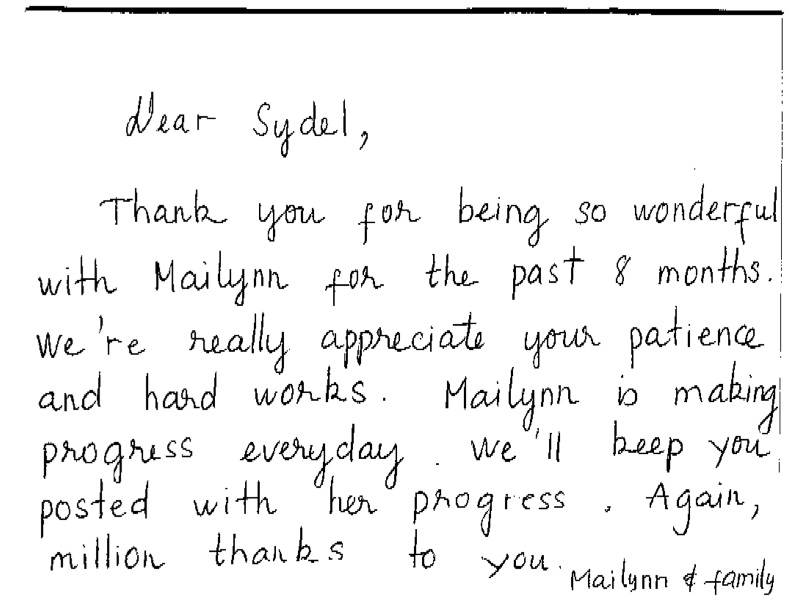 Dear Sydel,
Thank you for being so wonderful
with Mailynn for the past 8 months.
We're really appreciate your patience
and hard works. Mailynn is making
progress everyday. We'll keep you
posted with her progress. Again,
million thanks to you.
Mailynn & family